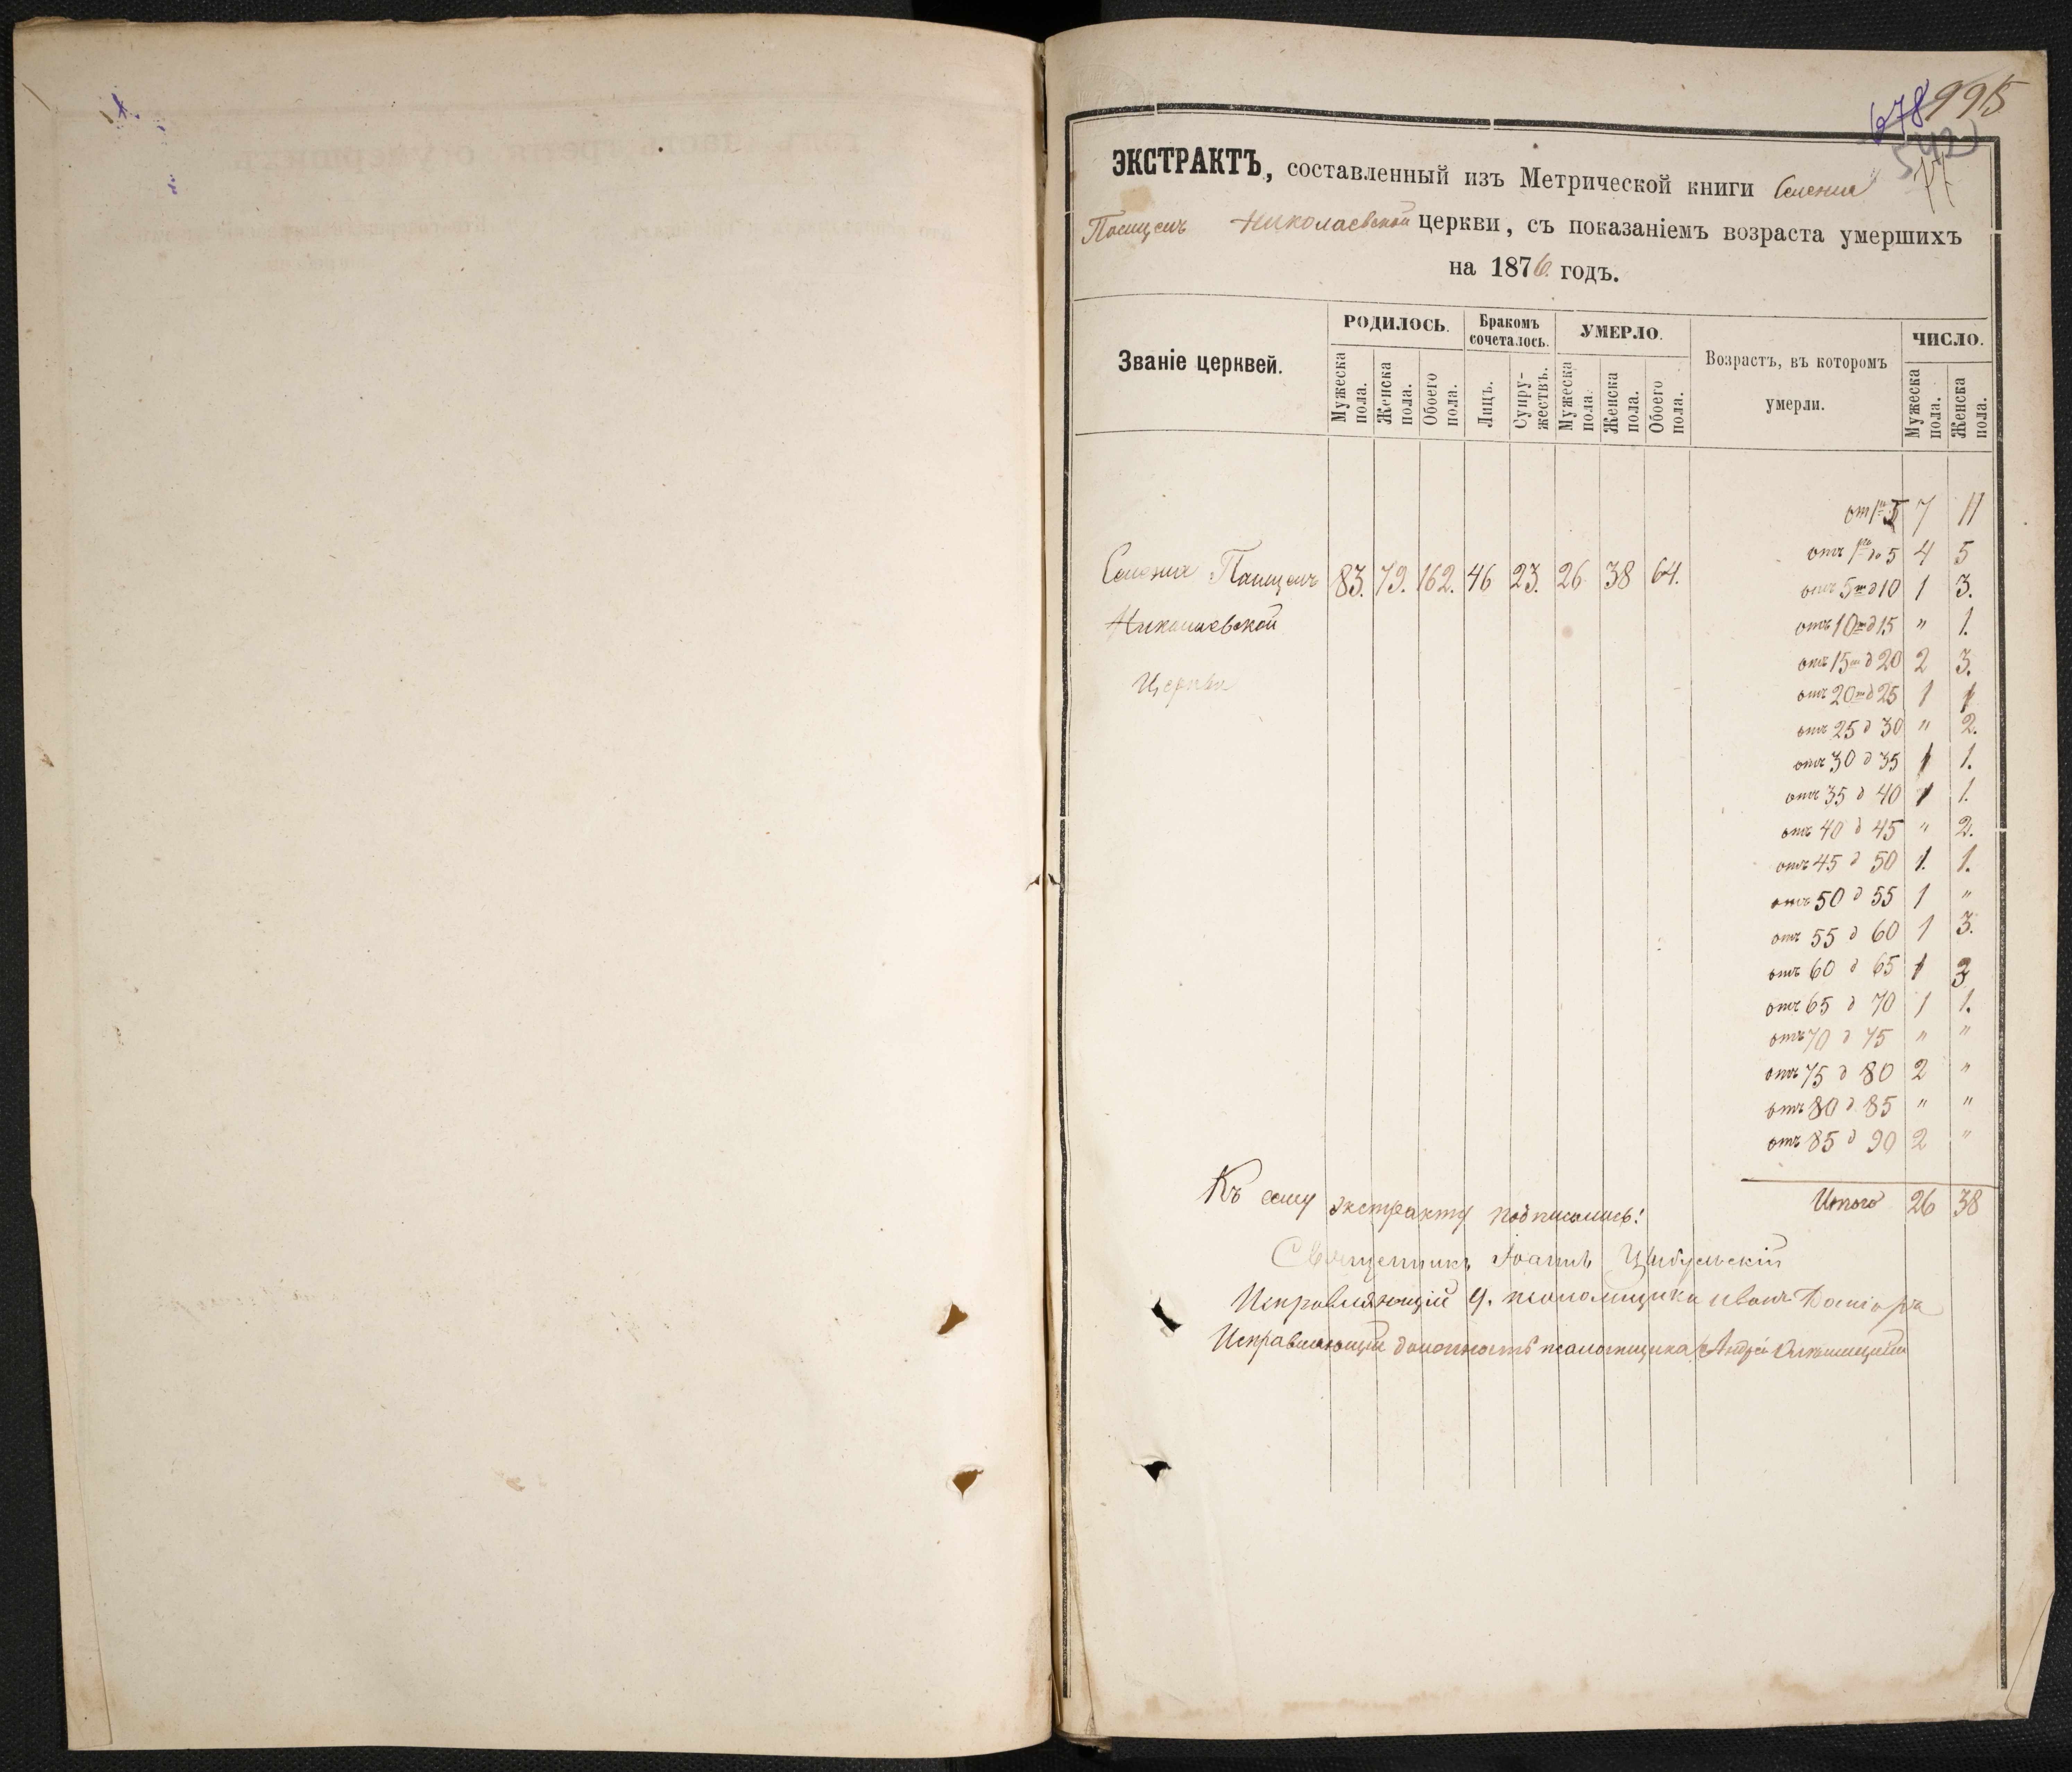 678 995
542
77
ЭКСТРАКТЪ, составленный изъ Метрической книги Селенія
Николаевской церкви, съ показаніемъ возраста умершихъ
на 1876. годъ.
Званіе церквей.
РОДИЛОСЬ.
Бракомъ сочеталось.
УМЕРЛО.
Возрастъ, въ которомъ умерли.
ЧИСЛО.
Мужеска пола.
Женска пола.
Обоего пола.
Лицъ.
Супружествъ.
Мужеска пола.
Женска пола.
Обоего пола.
Мужеска пола.
Женска пола.
7 11
отъ 1го до 5 4 5
Селенія 83. 79. 162. 46 23. 26 38 64.
отъ 5 д 10 1 3.
Николаевской
отъ 10 д 15 " 1.
отъ 15 д 20 2 3.
Церкви
отъ 20 д 25 1 1
отъ 25 д 30 " 2.
отъ 30 д 35 1 1.
отъ 35 д 40 1 1.
отъ 40 д 45 " 2.
отъ 45 д 50 1. 1.
отъ 50 д 55 1 "
отъ 55 д 60 1 3.
отъ 60 д 65 1 3
отъ 65 д 70 1 1.
отъ 70 д 75 " "
отъ 75 д 80 2 "
отъ 80 д 85 " "
отъ 85 д 90 2 "
Итого 26 38
Къ сему экстракту подписались:
Священникъ Іоаннъ Цыбульскій
Исправляющій д. псаломщика Иванъ
Исправляющій должность псаломщика Андрей